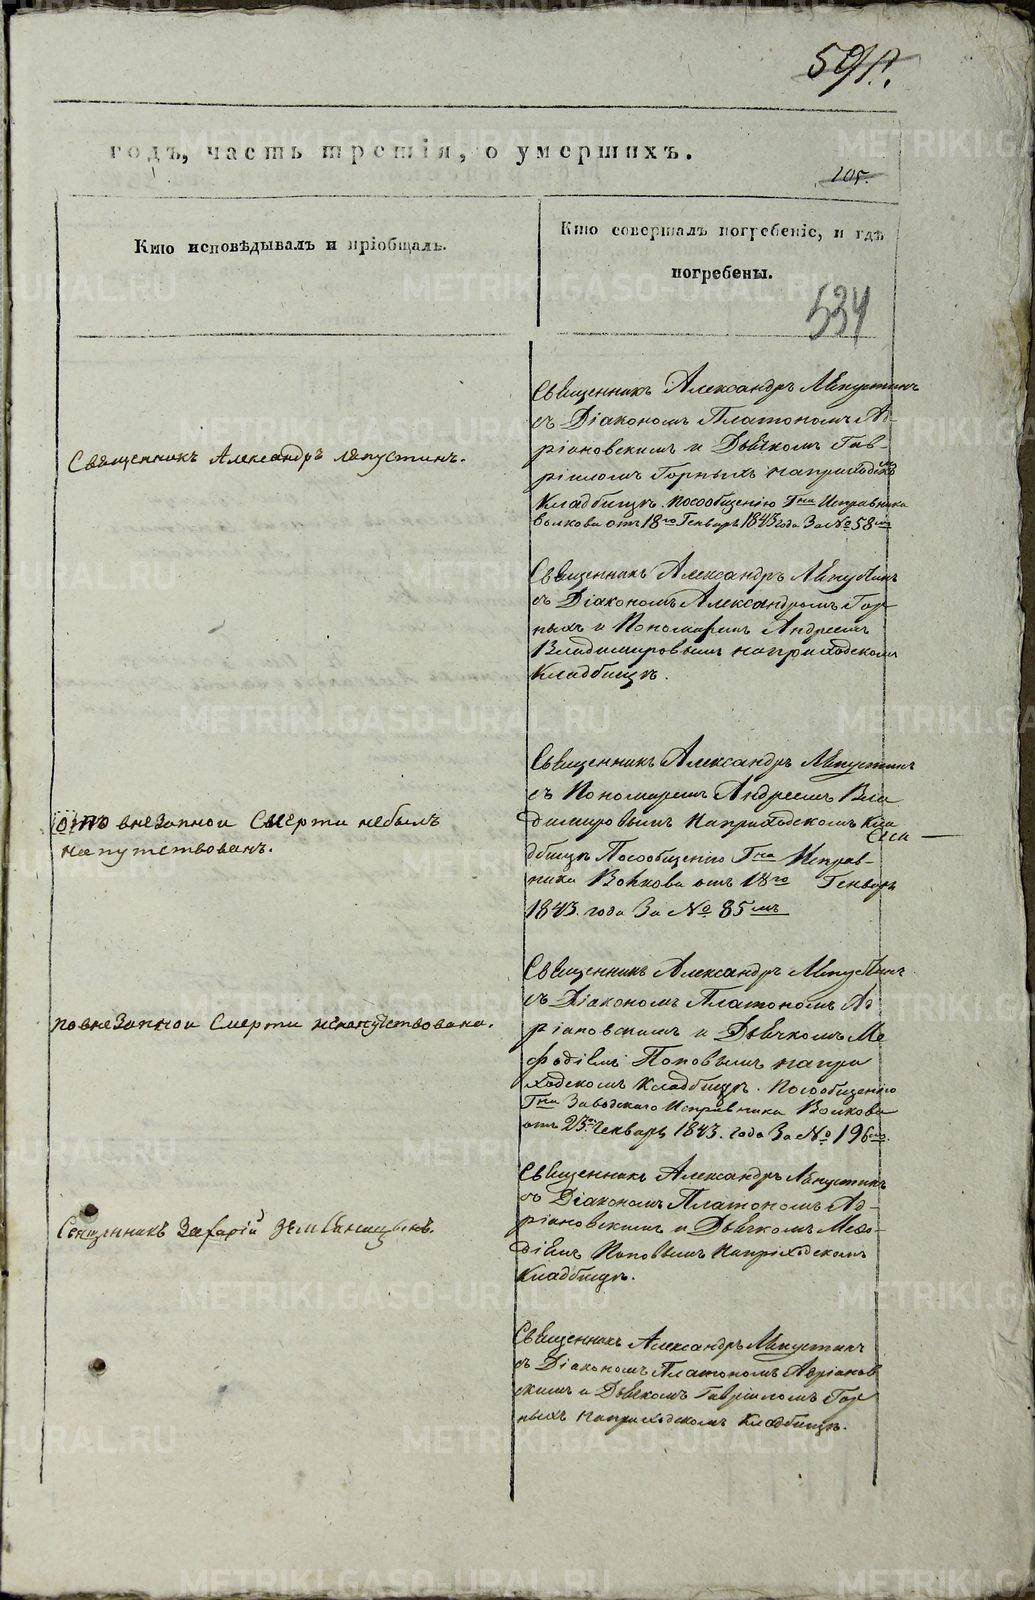 годъ, часть третія, о умершихъ.
205.
534
Кто исповѣдывалъ и пріобщалъ.
Кто совершалъ погребеніе, и гдѣ
погребены.
Священникъ Александръ Ляпустинъ.
Священникъ Александръ Ляпустинъ
съ Діакономъ Платономъ Ад-
ріановскимъ и Дьячкомъ Гав-
ріиломъ Горныхъ наприходскомъ
Кладбищѣ. посообщенію Гна Исправника
Волкова отъ 18го Генваря 1843 года За № 58мъ
Священникъ Александръ Ляпустинъ
съ Діакономъ Александромъ Гор
ныхъ и Пономаремъ Андреемъ
Владимировымъ наприходскомъ
Кладбищѣ.
Отъ внезапной Смерти небылъ
напутствованъ.
Священникъ Александръ Ляпустинъ
съ Пономаремъ Андреемъ Вла
димировымъ Наприходскомъ Кла
дбищѣ Посообщенію Гна Исправ-
ника Волкова отъ 18го Генваря
1843. года За № 85мъ
по внезапной Смерти ненапутствована.
Священникъ Александръ Ляпустинъ
съ Діакономъ Платономъ Ад
ріановскимъ и Дьячкомъ Ме
фодіемъ Поповымъ напри
ходскомъ Кладбищѣ. Посообщенію
Гна Заводскаго Исправника Волкова
отъ 23го Генваря 1843. года За № 196мъ.
Священникъ Захарій
Священникъ Александръ Ляпустинъ
съ Діакономъ Платономъ Ад-
ріановскимъ и Дьячкомъ Мефо-
діемъ Поповымъ Наприходскомъ
Кладбищѣ.
Священникъ Александръ Ляпустинъ
съ Діакономъ Платономъ Адріанов
скимъ и Дьячкомъ Гавріиломъ Гор
ныхъ наприходскомъ Кладбищѣ.
METRIKI.GASO-URAL.RU